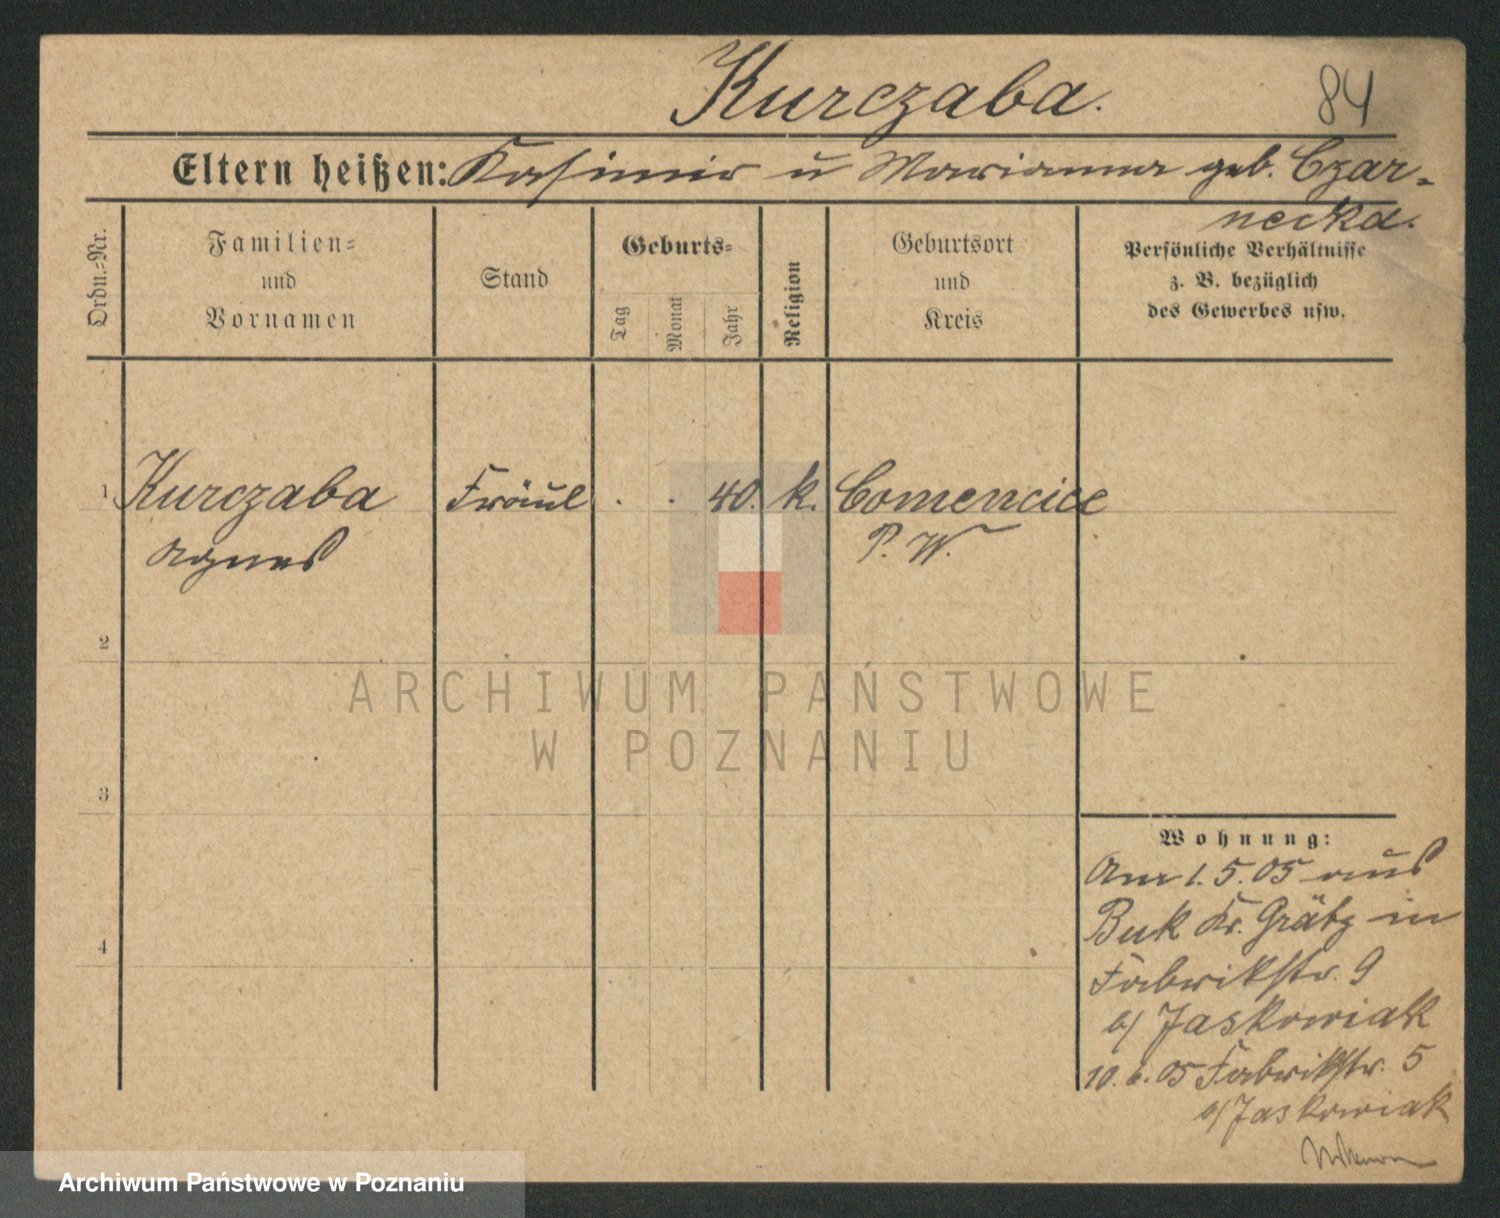 Kurczaba.
84
Eltern heißen: Kasimir u Marianna geb. Czar-
necka.
Ordn.-Nr.
Familien-
und
Vornamen
Stand
Geburts-
Tag
Monat
Jahr
Religion
Geburtsort
und
Kreis
Persönliche Verhältnisse
z. B. bezüglich
des Gewerbes usw.
1 Kurczaba Fräul . . 40. k. Comencice
Agnes P. W.
2
3
4
Wohnung:
Am 1. 5. 05 aus
Buk Kr. Grätz in
Fabrikstr. 9
b/ Jaskowiak
10. 6. 05 Fabrikstr. 5
b/ Jaskowiak
ARCHIWUM PAŃSTWOWE
W POZNANIU
Archiwum Państwowe w Poznaniu